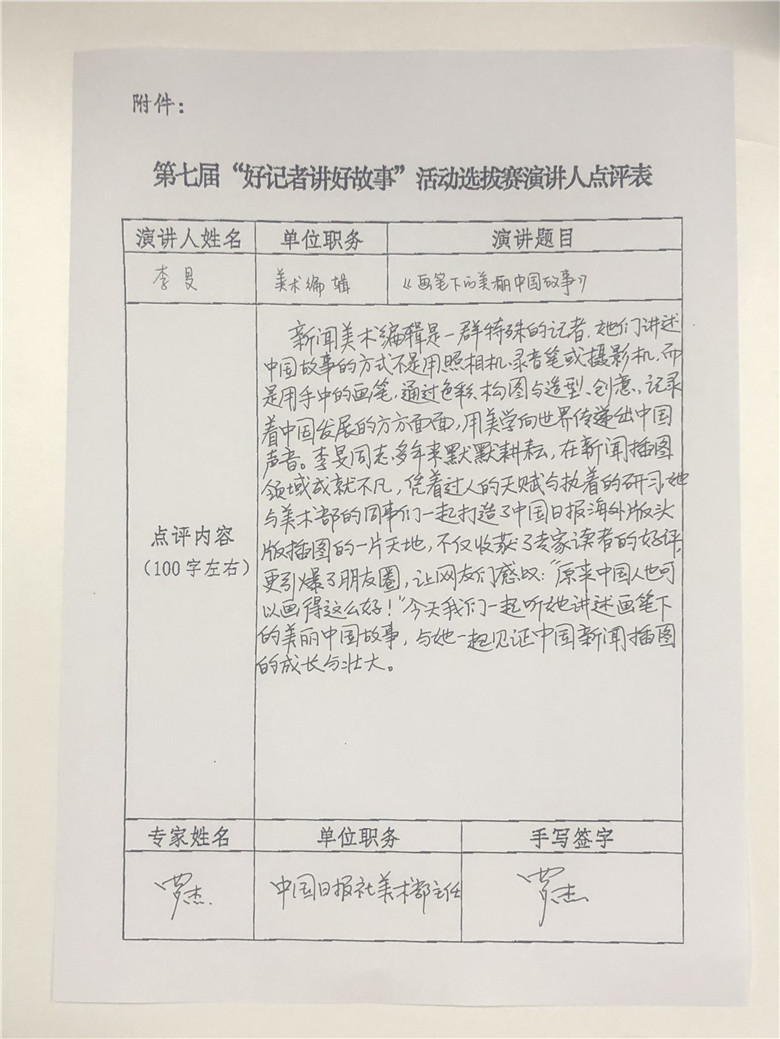 附件：
第七届“好记者讲好故事”活动选拔赛演讲人点评表
演讲人姓名 单位职务 演讲题目
李旻 美术编辑 《画笔下的美丽中国故事》
新闻美术编辑是一群特殊的记者，她们讲述
中国故事的方式不是用照相机、录音笔或摄影机，而
是用手中的画笔，通过色彩、构图与造型、创意，记录
着中国发展的方方面面，用美学向世界传递出中国
声音。李旻同志多年来默默耕耘，在新闻插图
领域成就不凡，凭着过人的天赋与执着的研习，她
与美术部的同事们一起打造了中国日报海外版头
版插图的一片天地，不仅收获了专家读者的好评，
更引爆了朋友圈，让网友们感叹：“原来中国人也可
以画得这么好！”今天我们一起听她讲述画笔下
的美丽中国故事，与她一起见证中国新闻插图
的成长与壮大。
点评内容
（100字左右）
专家姓名 单位职务 手写签字
罗杰. 中国日报社美术部主任 罗杰